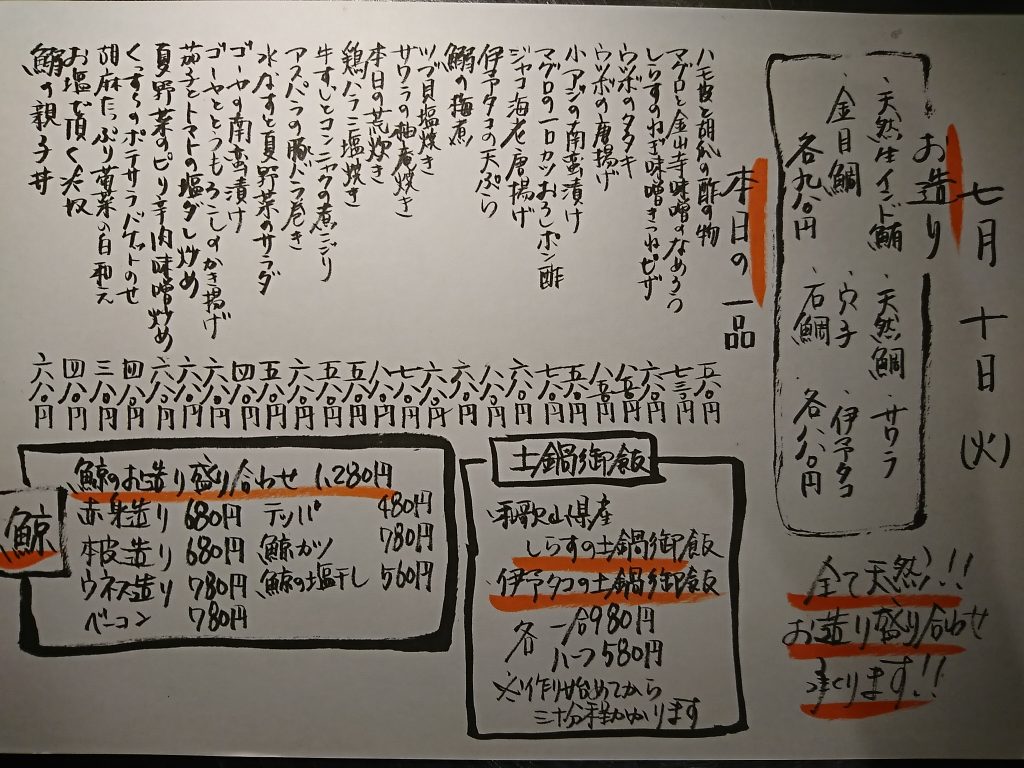 七月十日(火)
お造り
・天然生インド鮪 ・天然鯛 ・サワラ
・金目鯛 ・穴子 ・伊予タコ
各九八〇円 ・石鯛 各八八〇円
全て天然!!
お造り盛り合わせ
つくります!!
本日の一品
ハモ皮と胡瓜の酢の物 五八〇円
マグロと金山寺味噌のなめろう 七三〇円
しらすのねぎ味噌きつねピザ 六八〇円
ウツボのタタキ 八五〇円
ウツボの唐揚げ 八五〇円
小アジの南蛮漬け 五八〇円
マグロの一口カツおろしポン酢 七八〇円
ジャコ海老唐揚げ 六八〇円
伊予タコの天ぷら 八八〇円
鰯の梅煮 六八〇円
ツブ貝塩焼き 六八〇円
サワラの柚庵焼き 七八〇円
本日の荒炊き 八八〇円
鶏ハラミ塩焼き 五八〇円
牛すじとコンニャクの煮こごり 五八〇円
アスパラの豚バラ巻き 六八〇円
水なすと夏野菜のサラダ 五八〇円
ゴーヤの南蛮漬け 四八〇円
ゴーヤととうもろこしのかき揚げ 六八〇円
茄子とトマトの塩ダレ炒め 六八〇円
夏野菜のピリ辛肉味噌炒め 六八〇円
くっすーのポテサラバゲットのせ 四八〇円
胡麻たっぷり菊菜の白和え 三八〇円
お塩で頂く冷奴 四八〇円
鰯の親子丼 六八〇円
土鍋御飯
和歌山県産
しらすの土鍋御飯
伊予タコの土鍋御飯
各 一合980円
ハーフ580円
※作り始めてから
三十分程かかります
鯨
鯨のお造り盛り合わせ 1,280円
赤身造り 680円 テッパ 480円
本皮造り 680円 鯨カツ 780円
ウネス造り 780円 鯨の塩干し 560円
ベーコン 780円